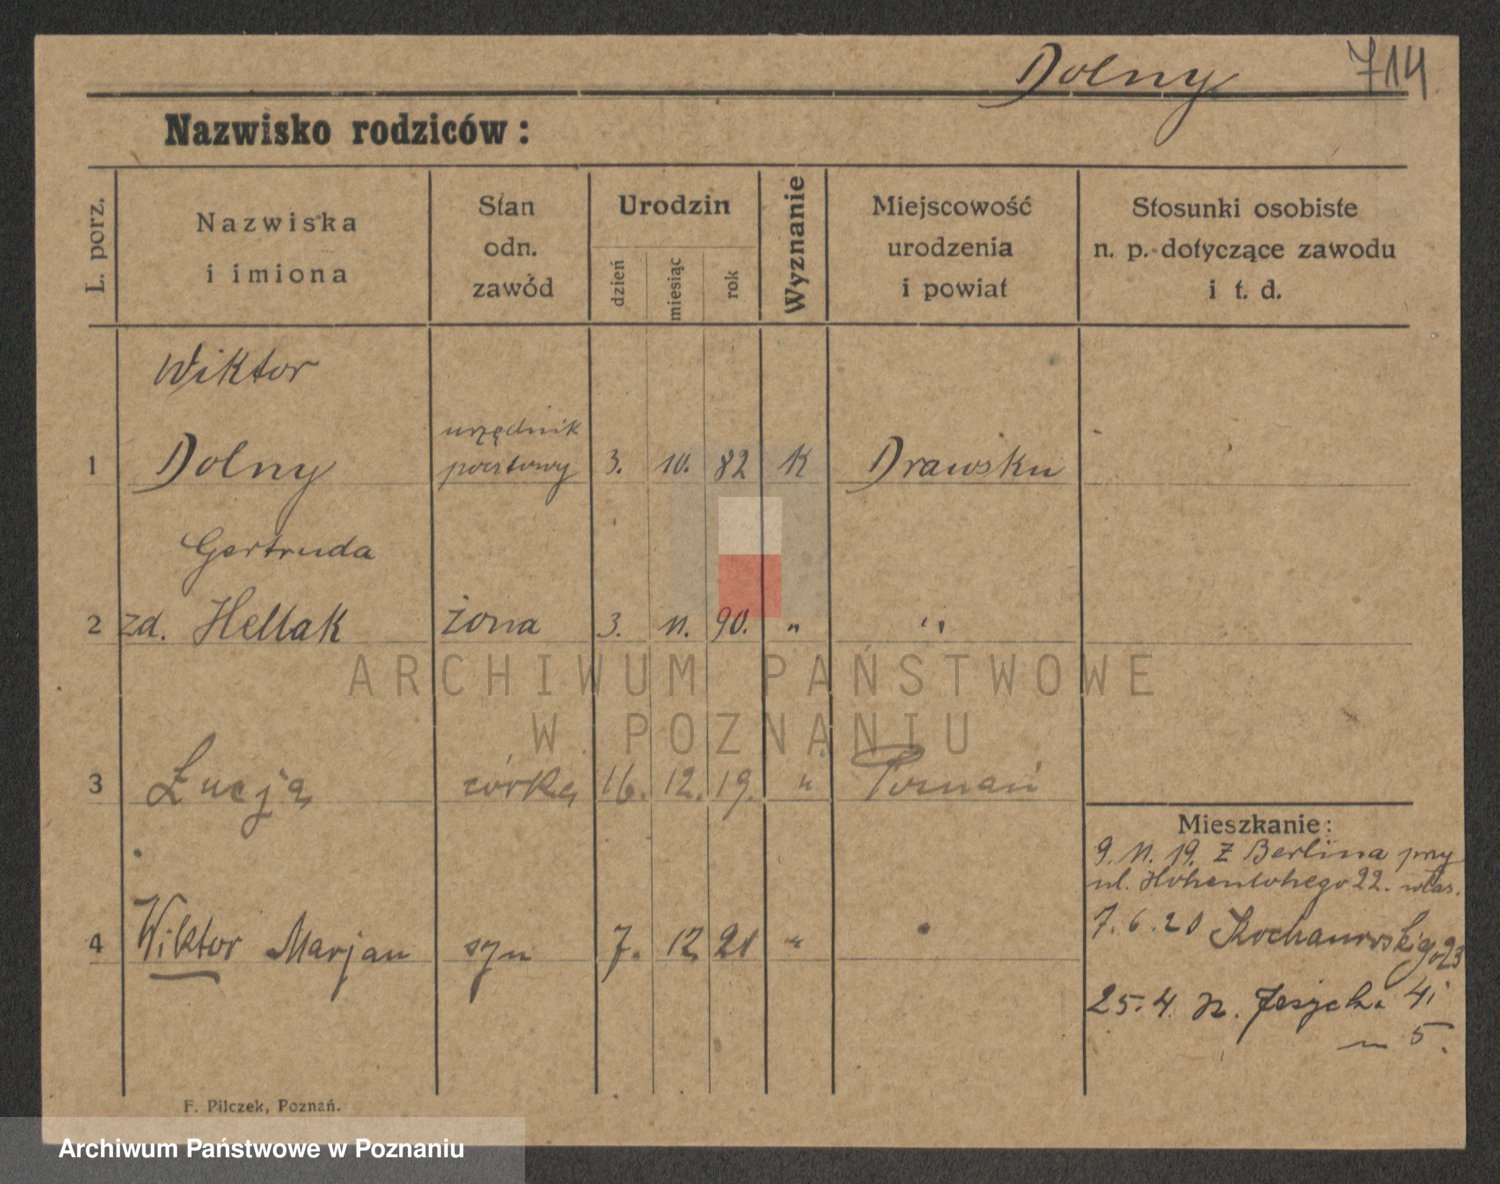 Dolny 714
Nazwisko rodziców:
L. porz.
Nazwiska
i imiona
Stan
odn.
zawód
Urodzin
dzień
miesiąc
rok
Wyznanie
Miejscowość
urodzenia
i powiat
Stosunki osobiste
n. p. dotyczące zawodu
i t. d.
Wiktor
urzędnik
1 Dolny pocztowy 3. 10. 82 K Drawsku
Gertruda
2 zd. Hellak żona 3. 11. 90. " "
ARCHIWUM PAŃSTWOWE
W POZNANIU
3 Łucja córka 16. 12. 19. " Poznań
Mieszkanie:
9. 11. 19. z Berlina przy
ul. Hohenlohego 22. włas.
7.6.20 Kochanowskiego 23
4 Wiktor Marjan syn 7. 12 21 "
25.4. 41
m 5.
F. Pilczek, Poznań.
Archiwum Państwowe w Poznaniu